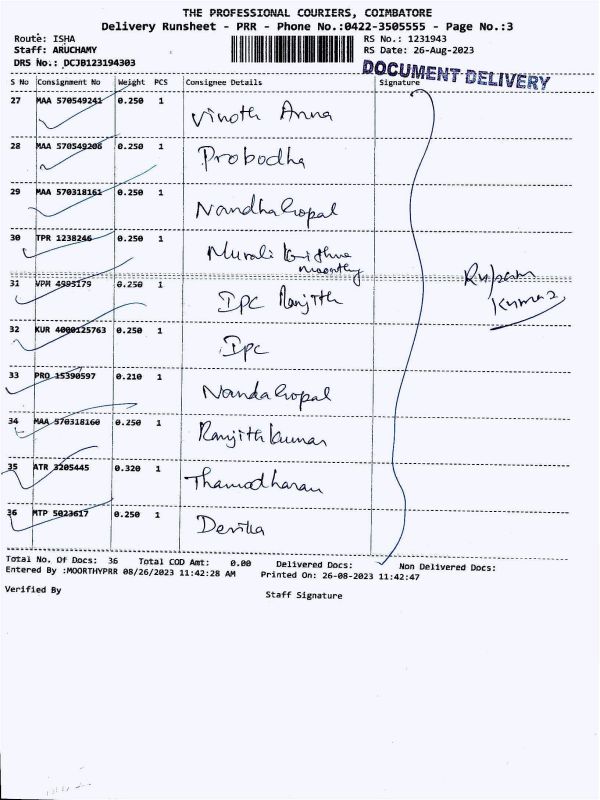 THE PROFESSIONAL COURIERS, COIMBATORE
Delivery Runsheet - PRR - Phone No.:0422-3505555 - Page No.:3
Route: ISHA RS No.: 1231943
Staff: ARUCHAMY RS Date: 26-Aug-2023
DRS No.: DCJB123194303
DOCUMENT DELIVERY
S No Consignment No Weight PCS Consignee Details Signature
27 MAA 570549241 0.250 1 Vinoth Anna
28 MAA 570549208 0.250 1 Probodha
29 MAA 570318161 0.250 1 Nandhakopal
30 TPR 1238246 0.250 1 Murali Krithna
moorthy
31 VPM 4993179 0.250 1 IPC Ranjith
Rupam
Kumar
32 KUR 4000125763 0.250 1 IPC
33 PRO 15390597 0.210 1 Nandakopal
34 MAA 570318160 0.250 1 Ranjith kumar
35 ATR 3205445 0.320 1 Thamodharan
36 MTP 5023617 0.250 1 Devika
Total No. Of Docs: 36 Total COD Amt: 0.00 Delivered Docs: Non Delivered Docs:
Entered By :MOORTHYPRR 08/26/2023 11:42:28 AM Printed On: 26-08-2023 11:42:47
Verified By Staff Signature